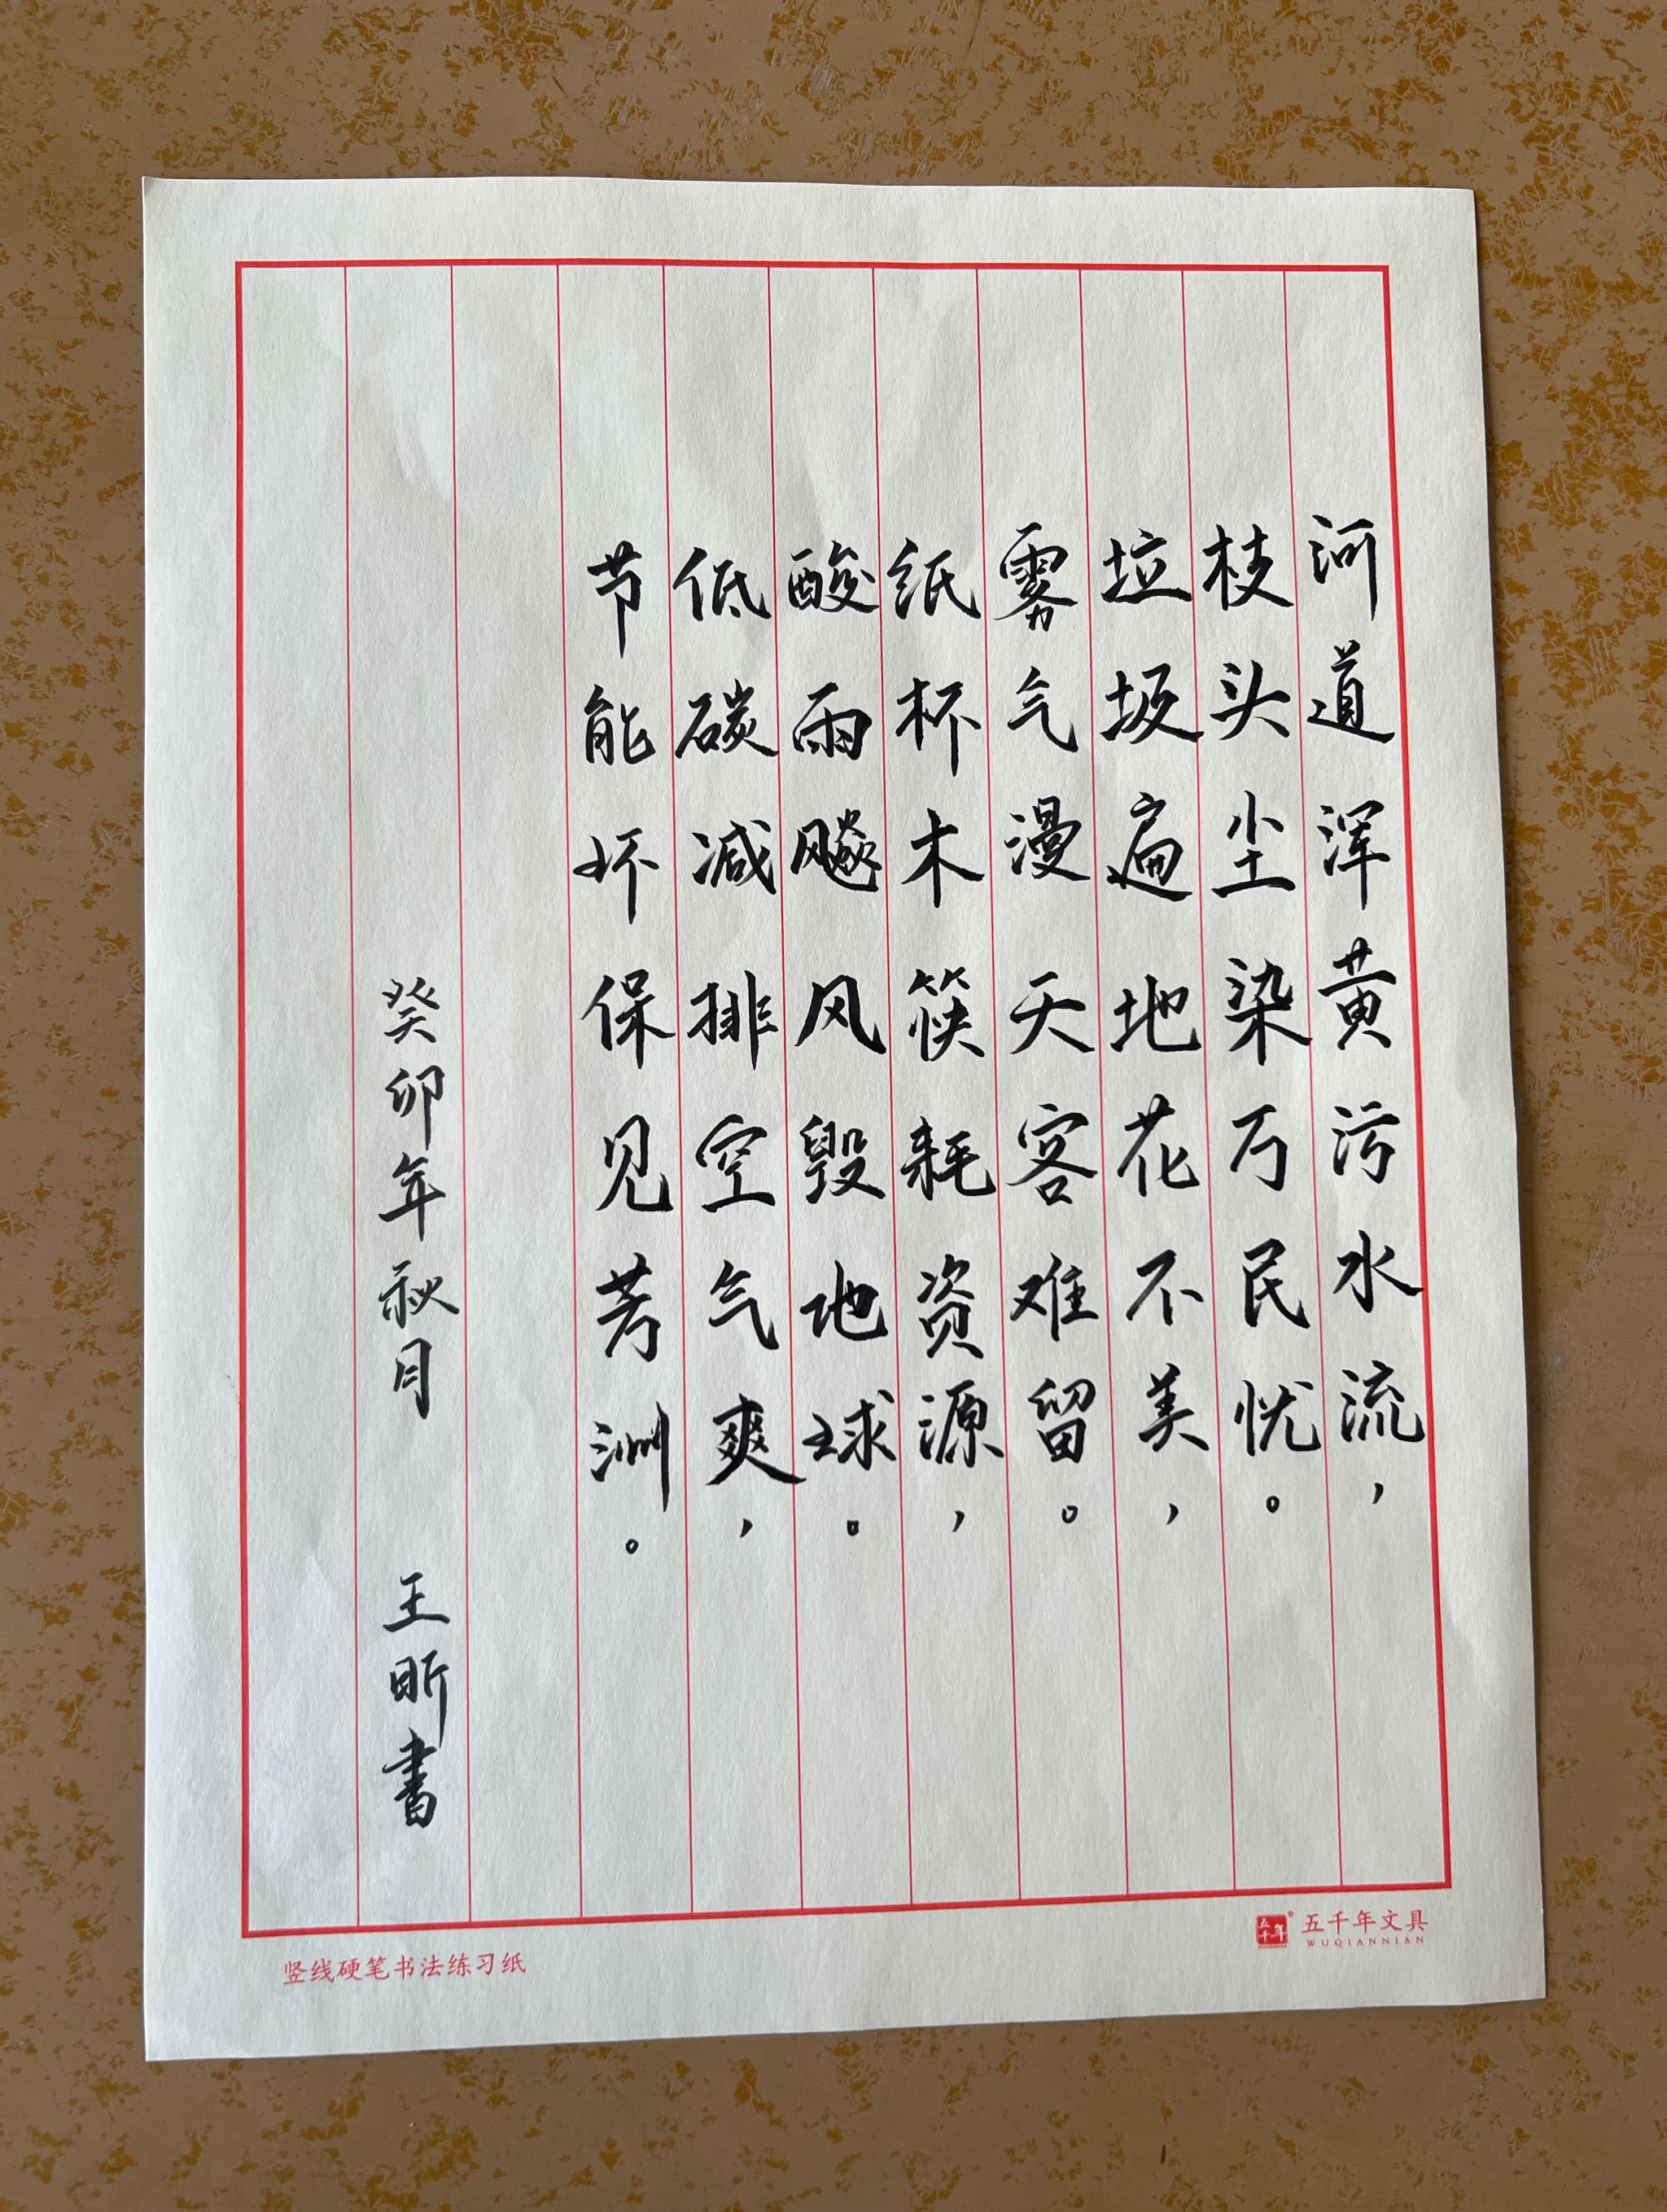 河道浑黄污水流，
枝头尘染万民忧。
垃圾遍地花不美，
雾气漫天客难留。
纸杯木筷耗资源，
酸雨飚风毁地球。
低碳减排空气爽，
节能环保见芳洲。
癸卯年秋月 王昕書
竖线硬笔书法练习纸
五千年 ® 五千年文具
WUQIANNIAN